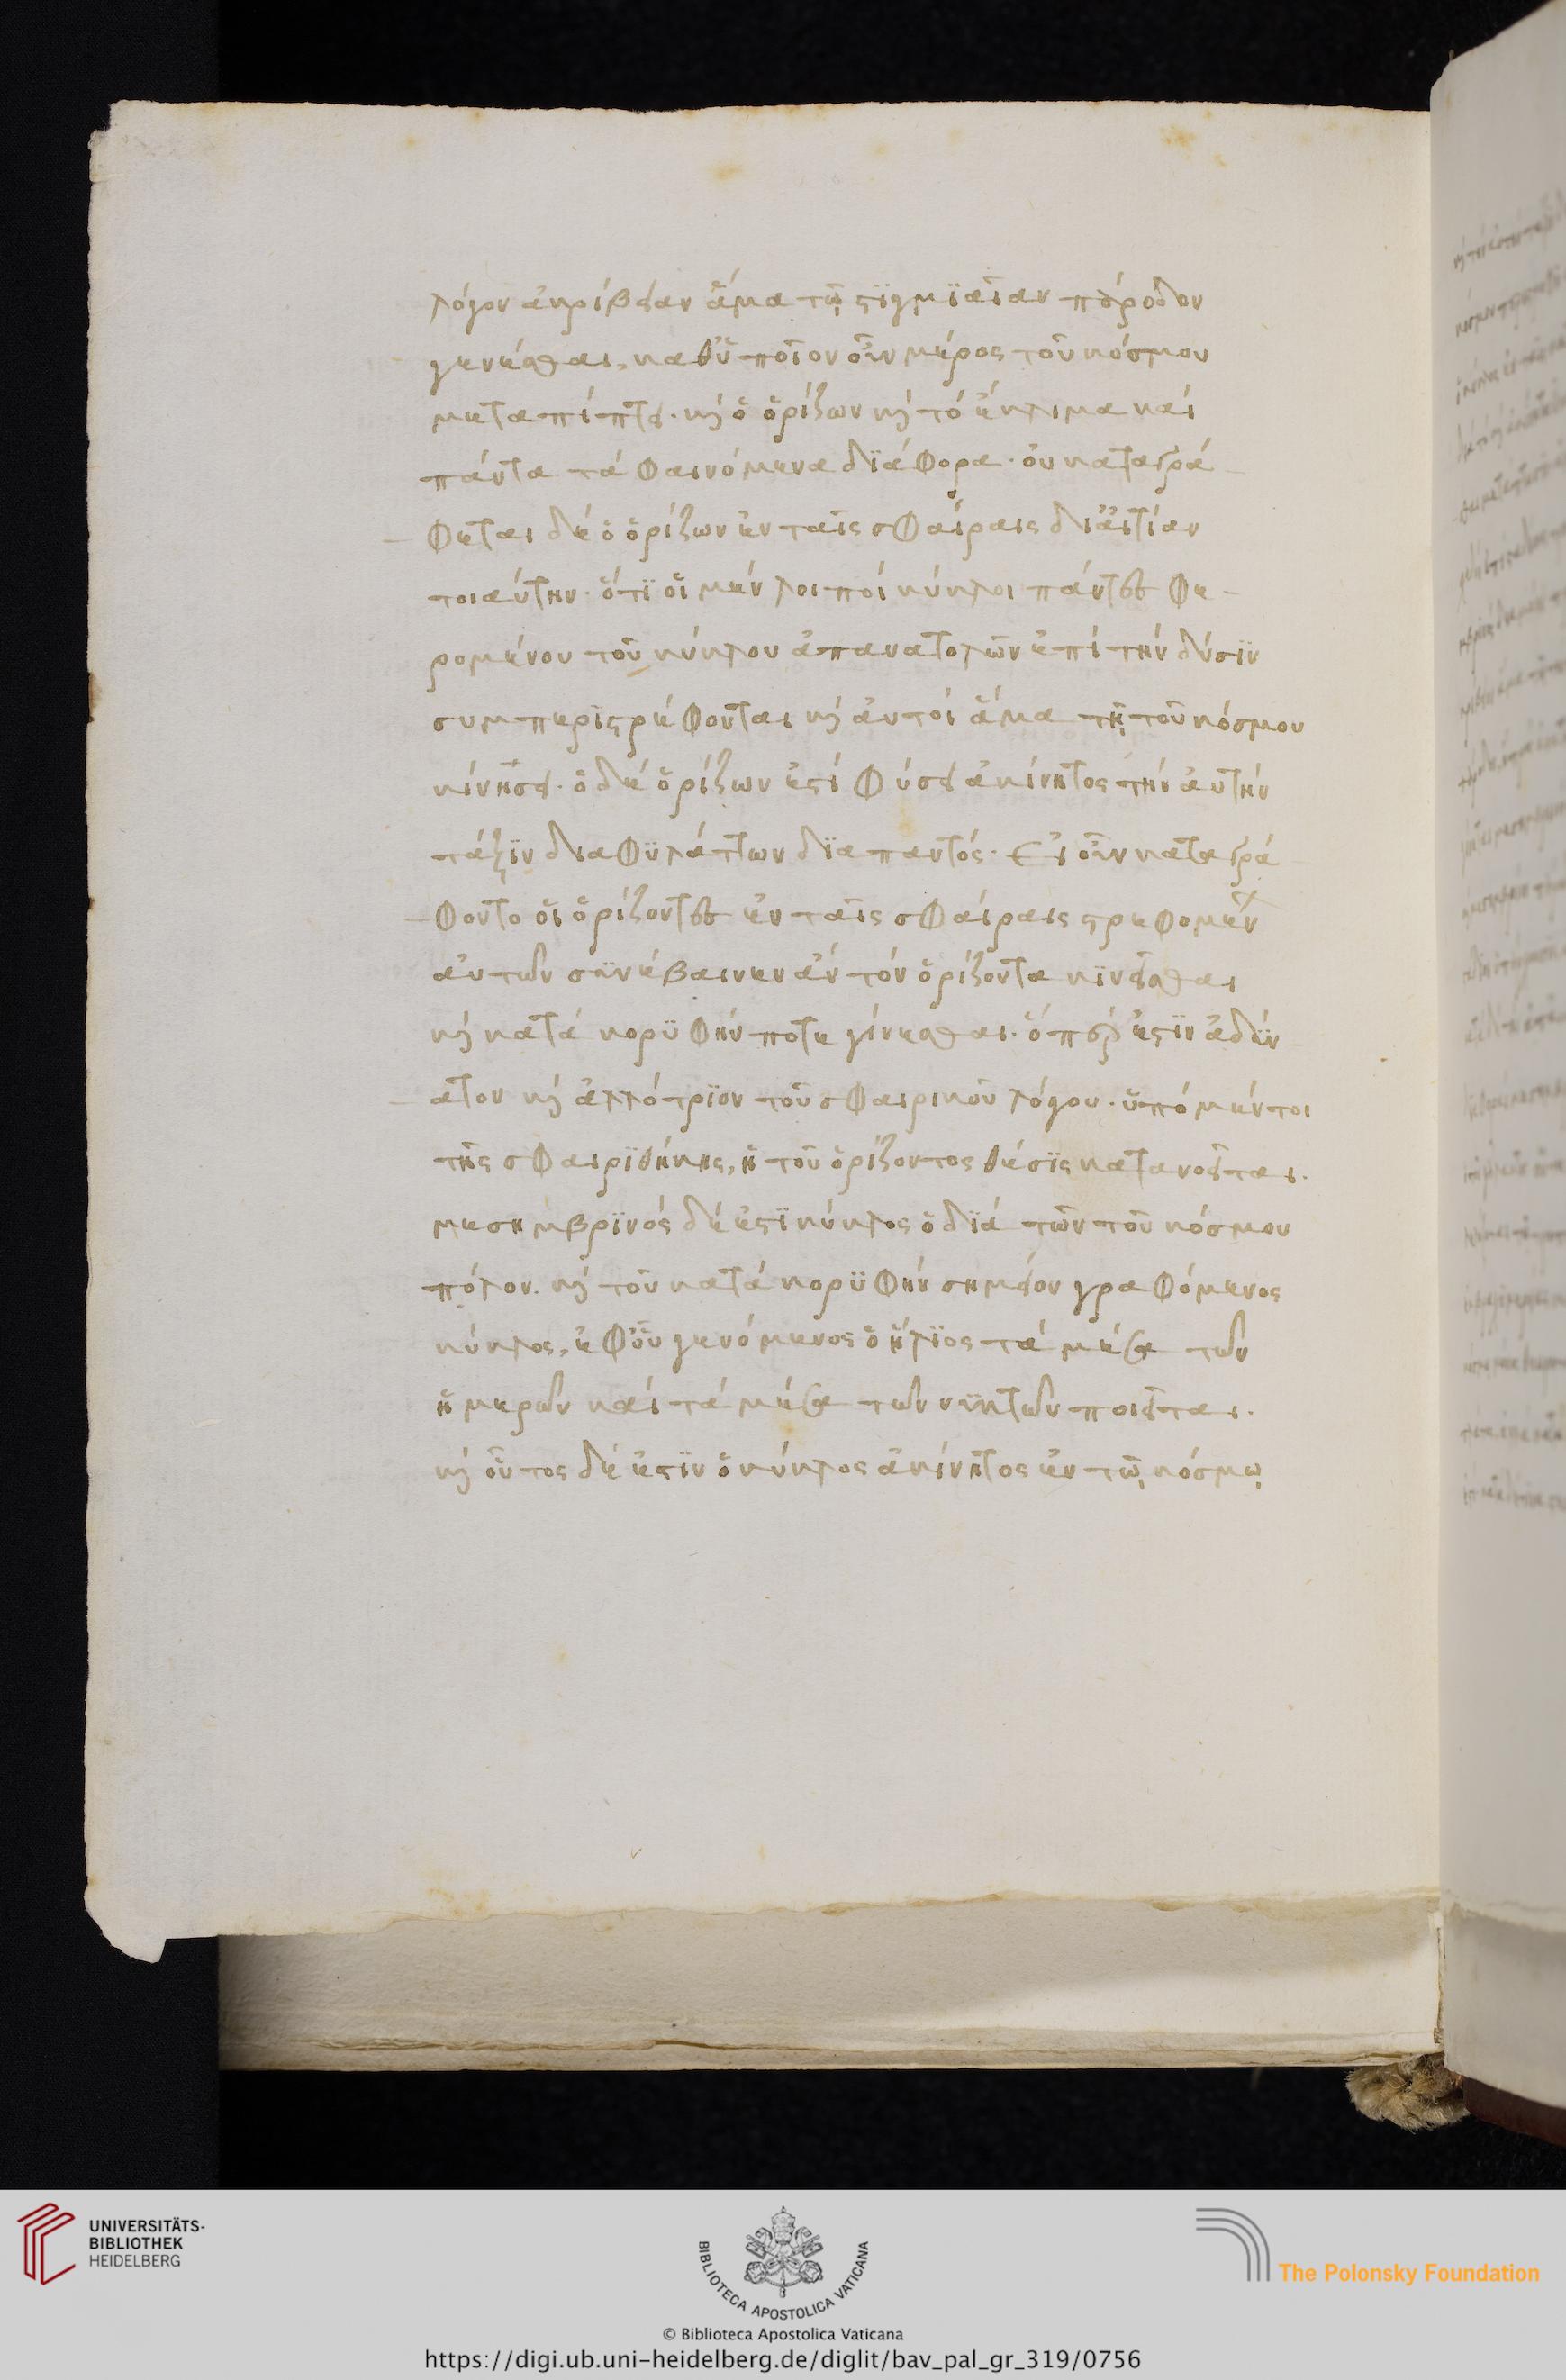 λόγον ἀκρίβειαν ἅμα τῶ̣ στϊγμϊαῖαν πάροδον
γενέσθαι, καθ' ὃποῖον οὖν μέρος τοῦ κόσμου
μεταπίπτει. κὶ ὁ ὁρίζων κὶ τὸ ἔγκλιμα καὶ
πάντα τὰ φαινόμενα δϊάφορα. οὐ καταγρά-
φεται δὲ ὁ ὁρίζων ἐν ταῖς σφαίραις δι' αἰτίαν
τοιαύτην. ὅτϊ οἱ μὲν λοιποὶ κύκλοι πάντες φε-
ρομένου τοῦ κύκλου ἀπ' ἀνατολῶν ἐπὶ τὴν δύσϊν
συμπεριστρέφονται κὶ ἀυτοὶ ἅμα τῆ̣ τοῦ κόσμου
κίνησει. ὁ δὲ ὁρίζων ἐστὶ φύσει ἀκίνητος τὴν ἀυτὴν
τάξϊν διαφϋλάττων δϊαπαντός. Εἰ οὖν καταγρά
φοντο οἱ ὁρίζοντες ἐν ταῖς σφαίραις στρεφομένων
ἀυτῶν σϋνέβαινεν ἂν τὸν ὁρίζοντα κϊνεῖσθαι
κὶ κατὰ κορϋφήν ποτε γίνεσθαι. ὅπερ ἐστϊν ἀδύν
ατον κὶ ἀλλότρϊον τοῦ σφαιρικοῦ λόγου. ὑπὸ μέντοι
τῆς σφαιρϊθήκης, ἡ τοῦ ὁρίζοντος θέσϊς κατανοεῖται.
μεσημβρϊνὸς δέ ἐστϊ κύκλος ὁ δϊὰ τῶν τοῦ κόσμου
πόλον. κὶ τοῦ κατὰ κορϋφὴν σημείον γραφόμενος
κύκλος, ἐφ' οὗ γενόμενος ὁ ἥλϊος τὰ μέσα τῶν
ἡμερῶν καὶ τὰ μέσα τῶν νϋκτῶν ποιεῖται.
κὶ οὗτος δέ ἐστϊν ὁ κύκλος ἀκίνητος ἐν τῶ̣ κόσμω̣
UNIVERSITÄTS-
BIBLIOTHEK
HEIDELBERG
BIBLIOTECA APOSTOLICA VATICANA
The Polonsky Foundation
© Biblioteca Apostolica Vaticana
https://digi.ub.uni-heidelberg.de/diglit/bav_pal_gr_319/0756